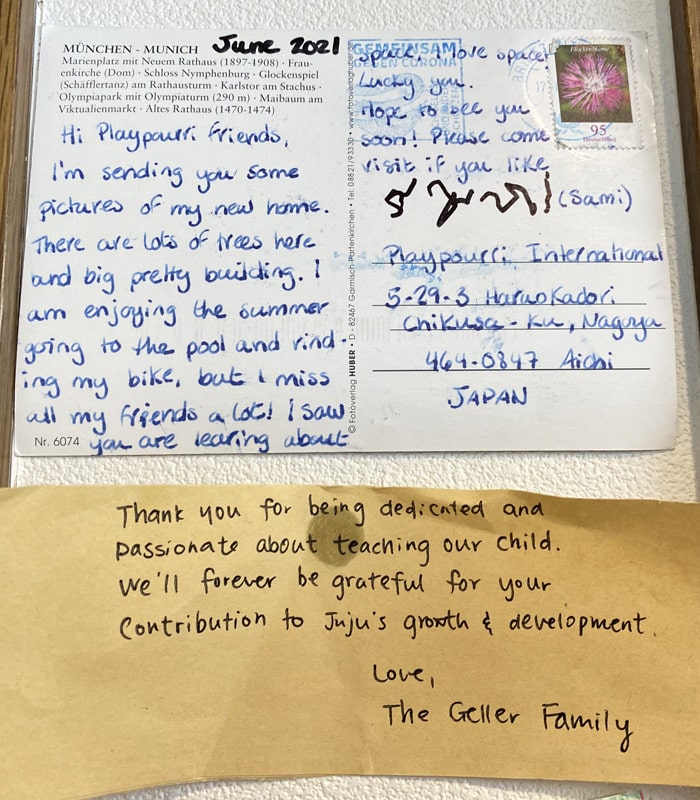 MÜNCHEN - MUNICH June 2021
Marienplatz mit Neuem Rathaus (1897-1908) · Frau-
enkirche (Dom) · Schloss Nymphenburg · Glockenspiel
(Schäfflertanz) am Rathausturm · Karlstor am Stachus ·
Olympiapark mit Olympiaturm (290 m) · Maibaum am
Viktualienmarkt · Altes Rathaus (1470-1474)
Hi Playpourri friends,
I'm sending you some
pictures of my new home.
There are lots of trees here
and big pretty building. I
am enjoying the summer
going to the pool and rind-
ing my bike, but I miss
all my friends a lot! I saw
you are learing about
Nr. 6074
© Fotoverlag HUBER • D - 82467 Garmisch-Partenkirchen • Tel: 08821/93330 • www.fotoverlaghuber.de
GEMEINSAM
GEGEN CORONA
space, I love space!
Lucky you.
Hope to see you
soon! Please come
visit if you like
(Sami)
95
Deutschland
Playpourri International
5-29-3 Haruokadori
Chikusa-Ku, Nagoya
464-0847 Aichi
JAPAN
Thank you for being dedicated and
passionate about teaching our child.
We'll forever be grateful for your
Contribution to Juju's growth & development.
Love,
The Geller Family